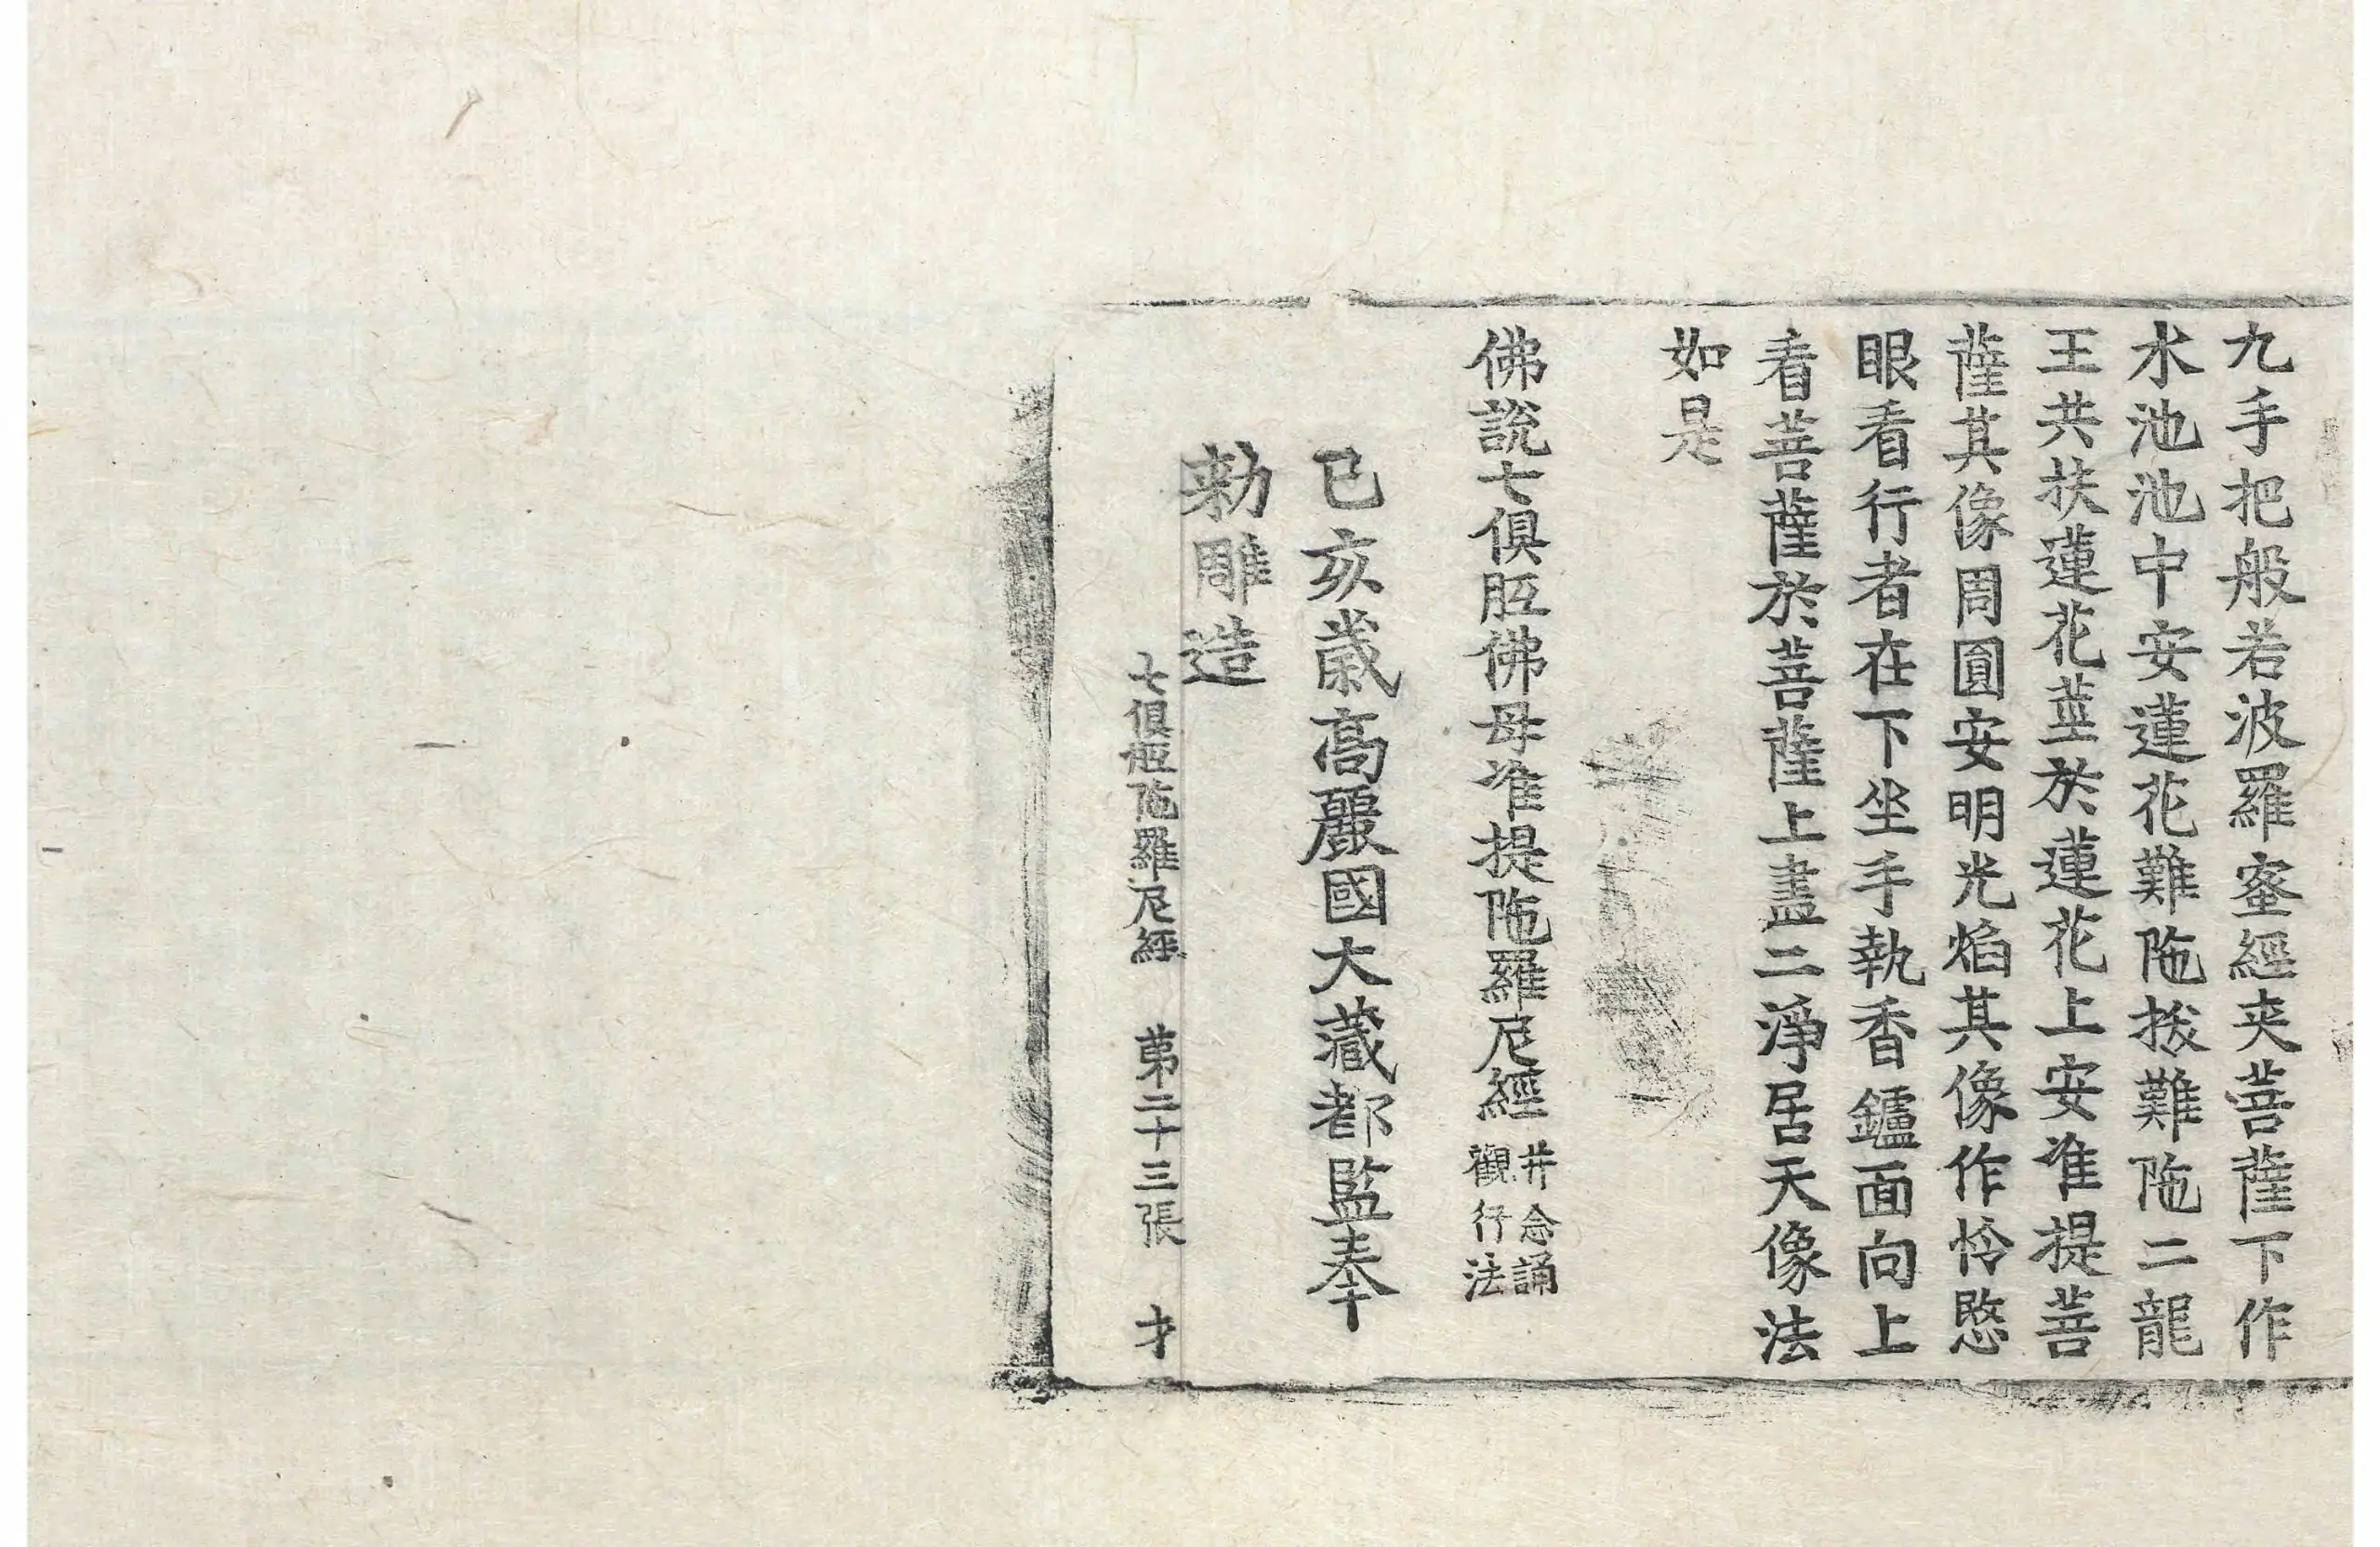 九手把般若波羅蜜經夾菩薩下作
水池池中安蓮花難陁拔難陁二龍
王共扶蓮花莖於蓮花上安准提菩
薩其像周圓安明光焰其像作怜愍
眼看行者在下坐手執香鑪面向上
看菩薩於菩薩上畫二淨居天像法
如是
佛說七俱胝佛母准提陁羅尼經
幷念誦
觀行法
己亥歲高麗國大藏都監奉
勑雕造
七俱胝陁羅尼經 第二十三張 才